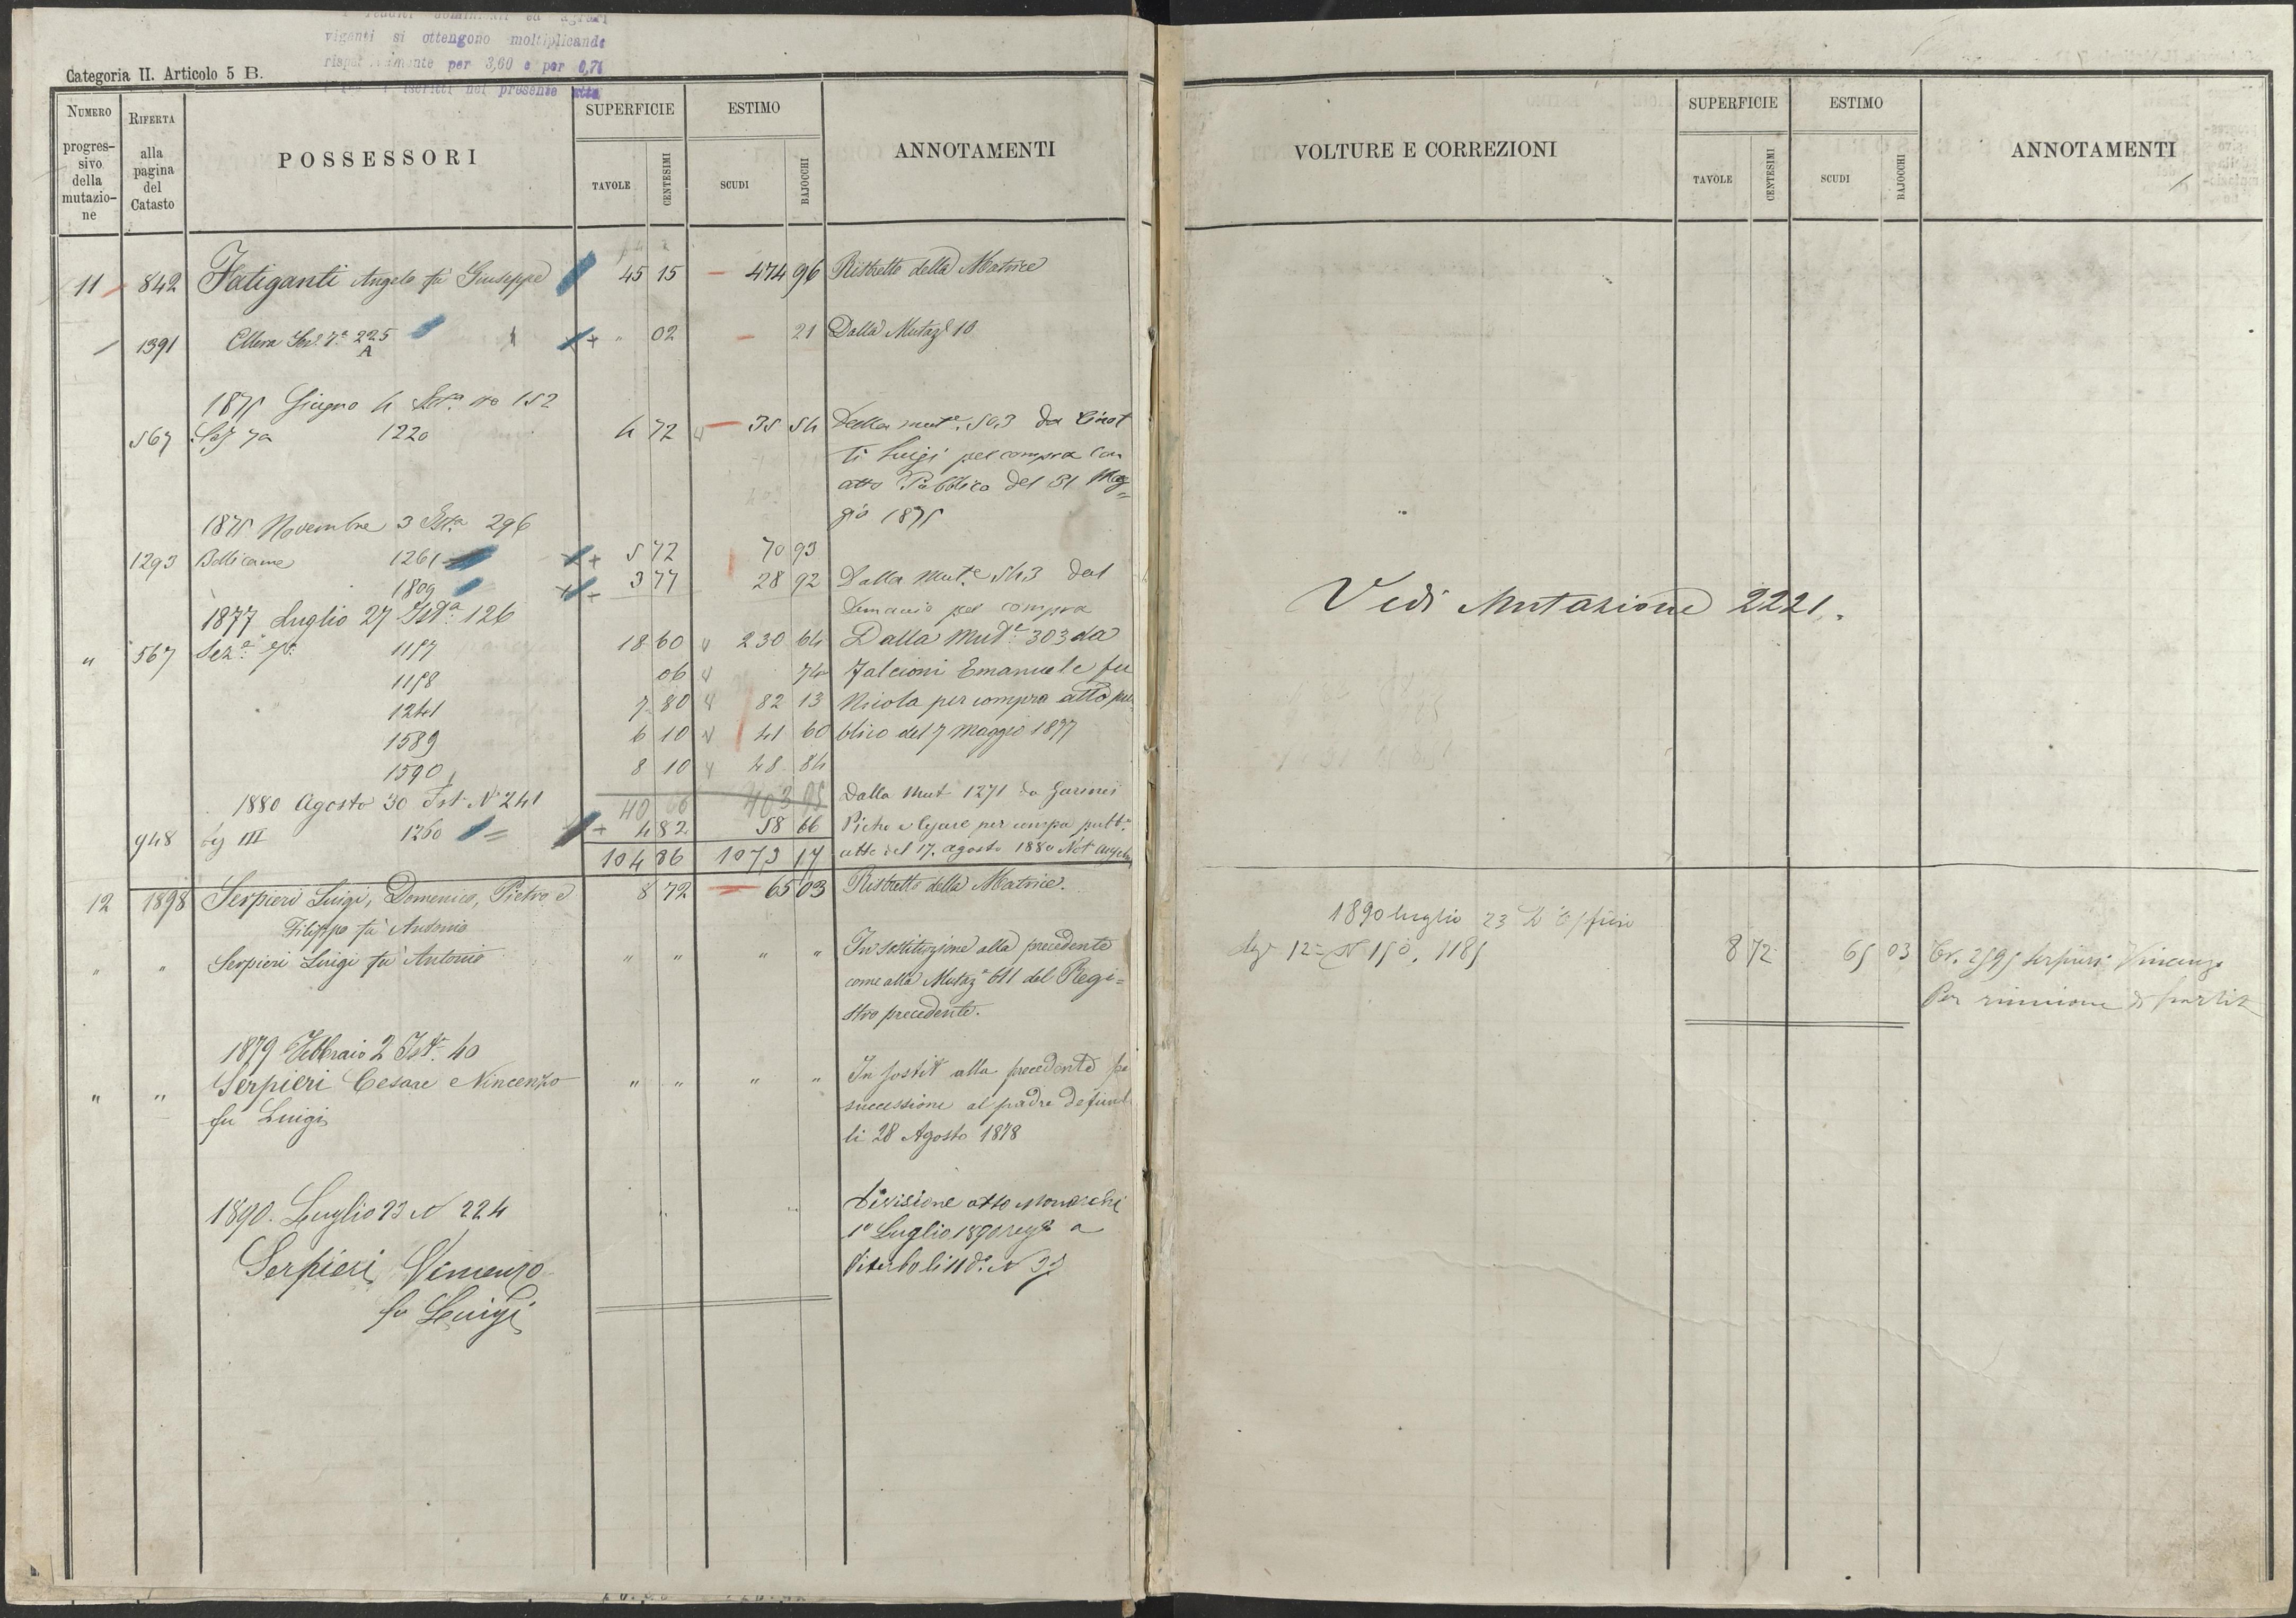 viganti si ottengono moltiplicando
per 3,60 e per 0,74
iscritti nel presente atto
Categoria II. Articolo 5 B.
NUMERO progressivo della mutazione
RIFERTA alla pagina del Catasto
POSSESSORI
SUPERFICIE
TAVOLE
CENTESIMI
ESTIMO
SCUDI
BAJOCCHI
ANNOTAMENTI
11 842 Fatiganti Angelo fù Giuseppe 45 15 474 96 Ristretto della Matrice
1391 Sez. 7ª 225 A " 02 21 Dalla Mutaz. 10
1875 Giugno 4 Ista no 152
567 Sez 7a 1220 4 72 35 54 Dalla mut.e 503 da
ti Luigi pel compra con
atto Pubblico del 31 Mag=
gio 1875
1875 Novembre 3 Ista 296
1293 Bollicame 1261 5 72 70 93
1809 3 77 28 92 Dalla Mut.e 543 dal
Demanio pel compra
1877 Luglio 27 Ista 126
" 567 Sez.e 7a 1157 18 60 230 64 Dalla Mut.e 303 da
1158 06 74 Falcioni Emanuele fu
1241 7 80 82 13 Nicola per compra atto pub
1589 6 10 41 60 blico del 7 Maggio 1877
1590 8 10 48 84
1880 Agosto 30 Ist. N. 241 40 66 403 95 Dalla Mut. 1271 da
948 III 1260 4 82 58 66 Pietro e Cesare per compa pubb.
104 86 1073 17 atto del 17. agosto 1880 Not
12 1898 Serpieri Luigi, Domenico, Pietro e 8 72 65 03 Ristretto della Matrice.
Filippo fù Antonio
" " Serpieri Luigi fù Antonio " " " " In sostituzione alla precedente
come alla Mutaz.e 611 del Regi=
stro precedente.
1879 Febbraio 2 Ist. 40
" " Serpieri Cesare e Vincenzo " " " " In sostit alla precedente pe
fu Luigi successione al padre defunt
li 28 Agosto 1878
1890. Luglio 23 N 224 Divisione atto Monarchi
1º Luglio 1890 reg. a
Serpieri Vincenzo Viterbo li 11 do. N
fu Luigi
VOLTURE E CORREZIONI
SUPERFICIE
TAVOLE
CENTESIMI
ESTIMO
SCUDI
BAJOCCHI
ANNOTAMENTI
Vedi Mutazione 2221.
1890 luglio 23
12= N 150, 1185 8 72 65 03 Tr. 2595 Serpieri Vincenzo
Per riunione di partit